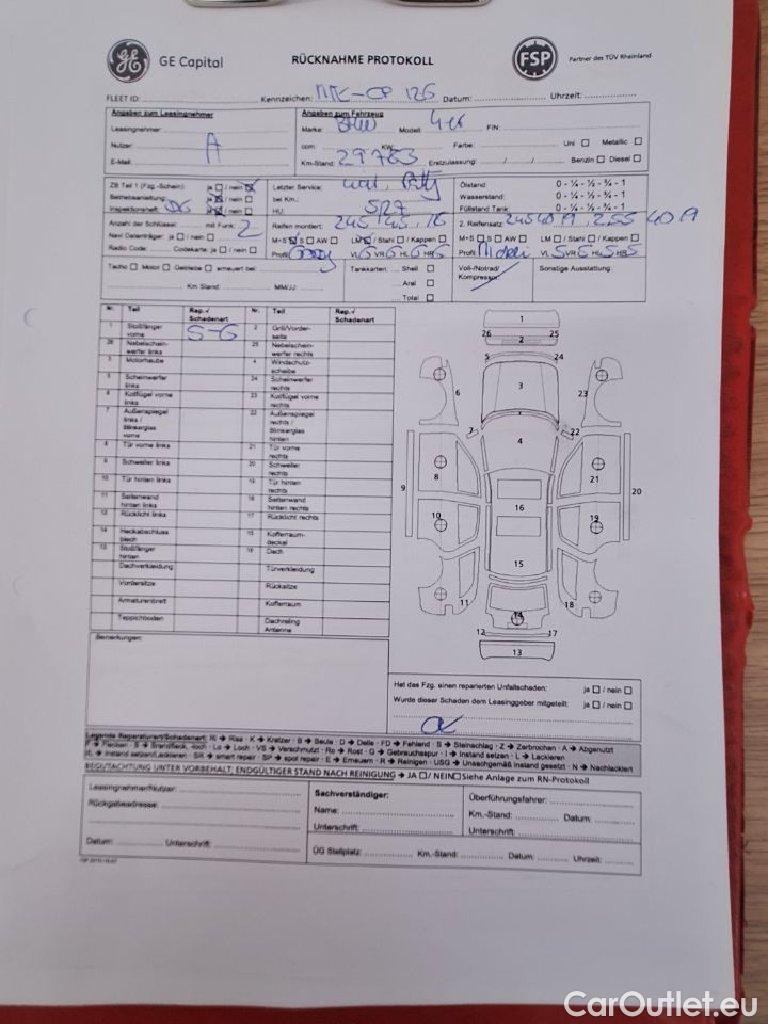 GE Capital
RÜCKNAHME PROTOKOLL
FSP
Partner des TÜV Rheinland
FLEET ID:
Kennzeichen: 126 Datum: Uhrzeit:
Angaben zum Leasingnehmer
Angaben zum Fahrzeug
Leasingnehmer:
Marke BMW Modell: FIN:
Nutzer: A
ccm: KW: Farbe: Uni Metallic
E-Mail:
Km-Stand: 29783 Erstzulassung: / / Benzin Diesel
ZB Teil 1 (Fzg.-Schein): ja / nein
Letzter Service:
Ölstand: 0 - ¼ - ½ - ¾ - 1
Betriebsanleitung: ja / nein
bei Km.:
Wasserstand: 0 - ¼ - ½ - ¾ - 1
Inspektionsheft: ja / nein
HU: 5/27
Füllstand Tank: 0 - ¼ - ½ - ¾ - 1
Anzahl der Schlüssel: mit Funk: 2
Reifen montiert: 245/45, 18
2. Reifensatz: 245 40 19, 255 40 19
Navi Datenträger: ja / nein
M+S S AW LM / Stahl / Kappen
M+S S AW LM / Stahl / Kappen
Radio Code: Codekarte: ja / nein
Profil VL 6 VR 6 HL 6 HR 6
Profil VL 5 VR 5 HL 5 HR 5
Tacho Motor Getriebe erneuert bei:
Tankkarten: Shell
Voll-/Notrad/
Sonstige Ausstattung:
Km Stand: MM/JJ:
Aral
Kompressor:
Total
Nr. Teil Rep. / Schadenart Nr. Teil Rep. / Schadenart
1 Stoßfänger vorne S-G 2 Grill/Vorderseite
26 Nebelscheinwerfer links 25 Nebelscheinwerfer rechts
3 Motorhaube 4 Windschutzscheibe
5 Scheinwerfer links 24 Scheinwerfer rechts
6 Kotflügel vorne links 23 Kotflügel vorne rechts
7 Außenspiegel links / Blinkerglas vorne 22 Außenspiegel rechts / Blinkerglas hinten
8 Tür vorne links 21 Tür vorne rechts
9 Schweller links 20 Schweller rechts
10 Tür hinten links 19 Tür hinten rechts
11 Seitenwand hinten links 18 Seitenwand hinten rechts
12 Rücklicht links 17 Rücklicht rechts
14 Heckabschlussblech 15 Kofferraumdeckel
13 Stoßfänger hinten 16 Dach
Dachverkleidung Türverkleidung
Vordersitze Rücksitze
Armaturenbrett Kofferraum
Teppichboden Dachreling Antenne
1
26 2 25
5 24
6 3 23
7 22
4
8 21
9 20
10 16 19
15
11 14 18
12 17
13
Bemerkungen:
Hat das Fzg. einen reparierten Unfallschaden: ja / nein
Wurde dieser Schaden dem Leasinggeber mitgeteilt: ja / nein
Legende Reparaturart/Schadenart: RI → Riss · K → Kratzer · B → Beule · D → Delle · FD → Fehlend · S → Steinschlag · Z → Zerbrochen · A → Abgenutzt
F → Flecken · B → Brandfleck, -loch · Lo → Loch · VS → Verschmutzt · Ro → Rost · G → Gebrauchsspur · I → Instand setzen · L → Lackieren
IL → Instand setzen/Lackieren · SR → smart repair · SP → spot repair · E → Erneuern · R → Reinigen · USG → Unsachgemäß instand gesetzt · N → Nachlackiert
BEGUTACHTUNG UNTER VORBEHALT, ENDGÜLTIGER STAND NACH REINIGUNG → JA / NEIN Siehe Anlage zum RN-Protokoll
Leasingnehmer/Nutzer:
Sachverständiger:
Überführungsfahrer:
Rückgabeadresse:
Name:
Km.-Stand: Datum:
Unterschrift:
Unterschrift:
Datum: Unterschrift:
ÜG Stellplatz: Km.-Stand: Datum: Uhrzeit:
CarOutlet.eu